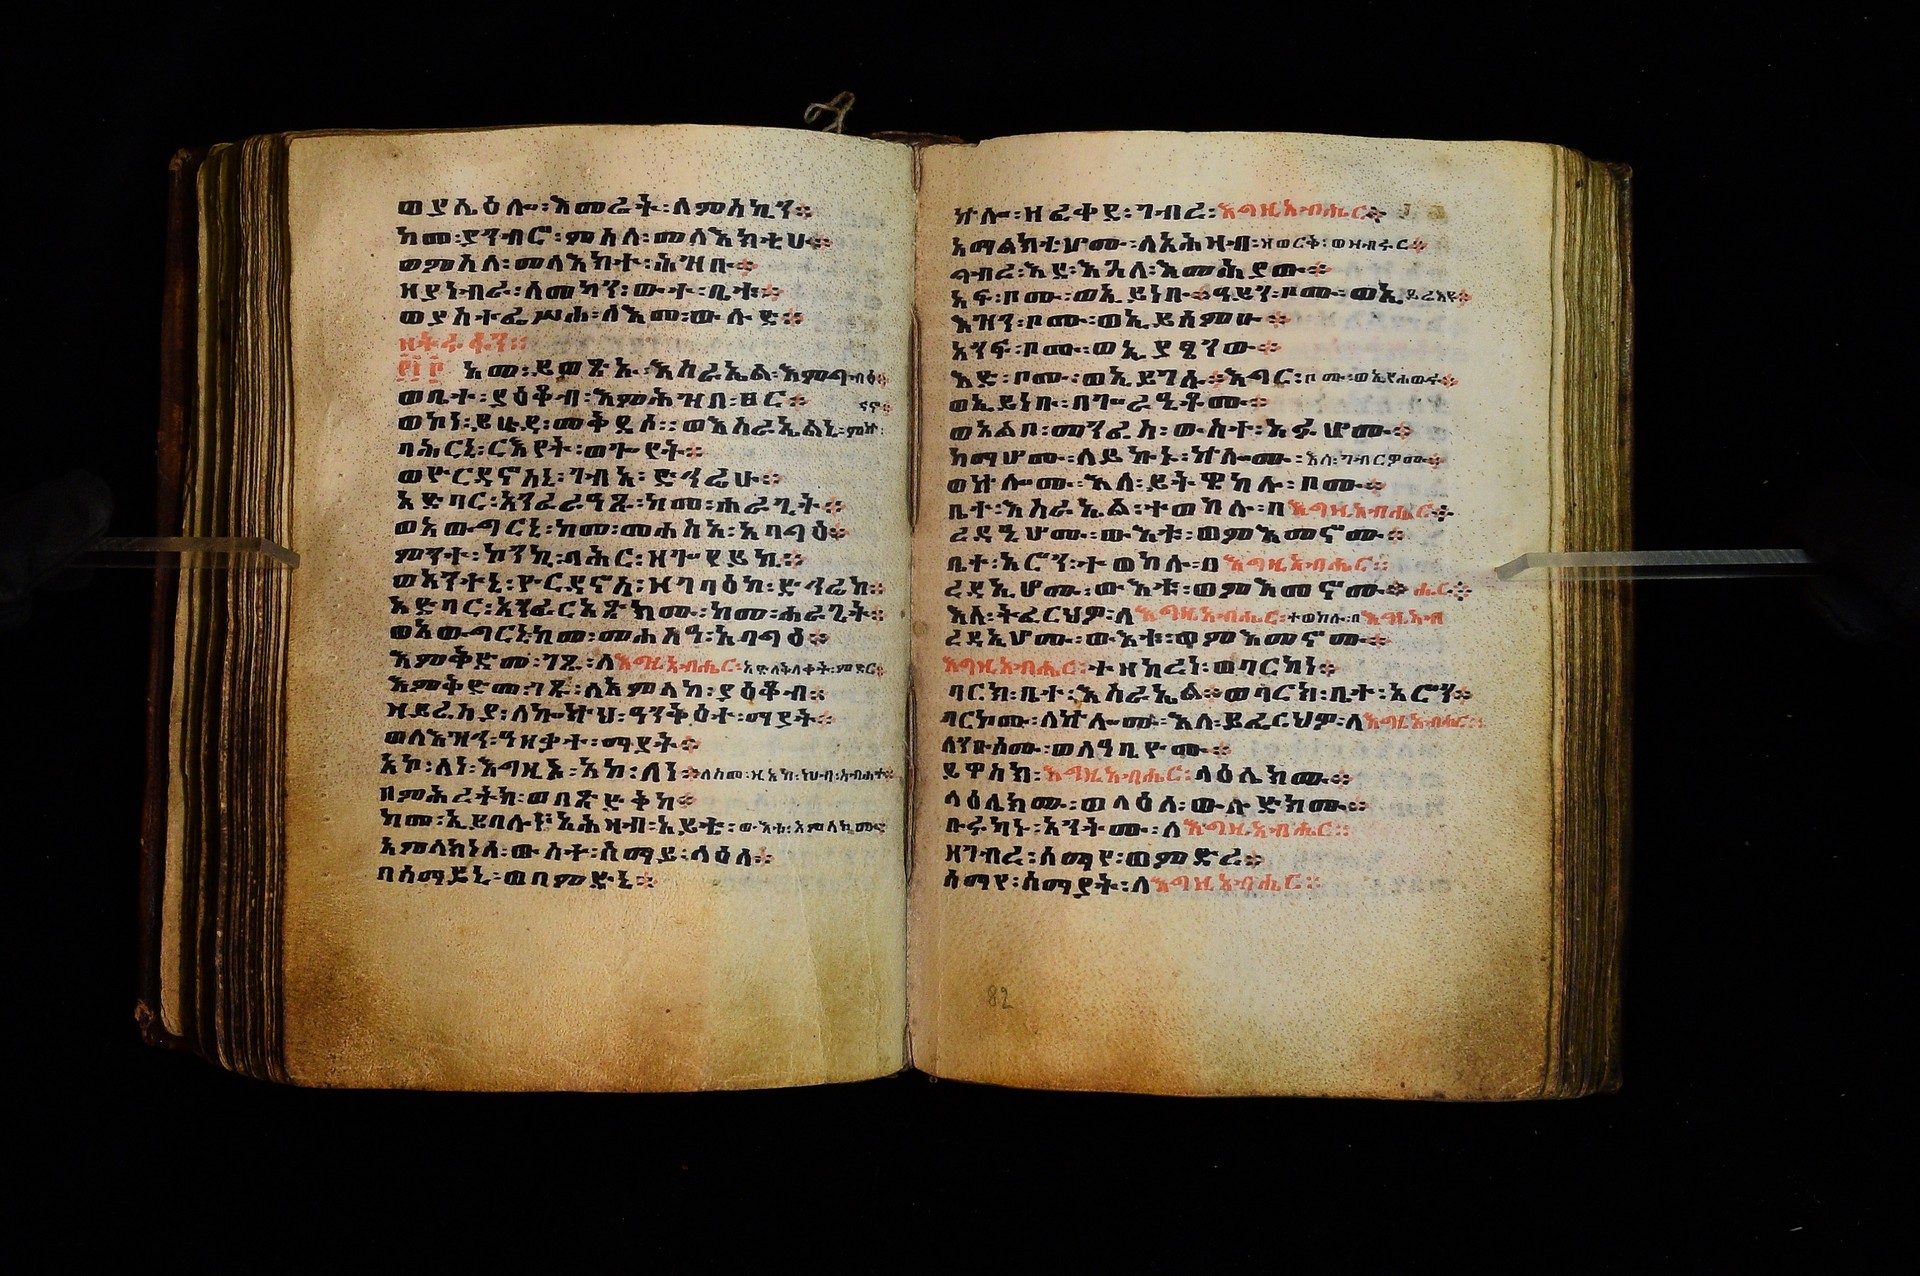 ወያሌዕሎ፡እመሬት፡ለምስኪን።
ከመ፡ያንብሮ፡ምስለ፡መላእክቲሁ።
ወምስለ፡መላእክተ፡ሕዝቡ።
ዘያነብራ፡ለመካን፡ውስተ፡ቤቱ።
ወያስተፌሥሐ፡ለእመ፡ውሉድ።
፻፲፫ አመ፡ይወፅኡ፡እስራኤል፡እምግብፅ።
ወቤተ፡ያዕቆብ፡እምሕዝበ፡ፀር።
ወኮነ፡ይሁዳ፡መቅደሶ። ወእስራኤልኒ፡ምኵናኖ።
ባሕርኒ፡ርእየት፡ወጐየት።
ወዮርዳኖስኒ፡ገብአ፡ድኅሬሁ።
አድባር፡አንፈርዓፁ፡ከመ፡ሐራጊት።
ወአውግርኒ፡ከመ፡መሐስአ፡አባግዕ።
ምንተ፡ኮንኪ፡ባሕር፡ዘጐየይኪ።
ወአንተኒ፡ዮርዳኖስ፡ዘገባዕከ፡ድኅሬከ።
አድባር፡አንፈርአፁክሙ፡ከመ፡ሐራጊት።
ወአውግርኒ፡ከመ፡መሐስዓ፡አባግዕ።
እምቅድመ፡ገጹ፡ለእግዚአብሔር፡አድለቅለቀት፡ምድር።
እምቅድመ፡ገጹ፡ለአምላከ፡ያዕቆብ።
ዘይሬስያ፡ለኰኵህ፡ዓንቅዕተ፡ማያት።
ወለእዝኅ፡ዓዘቃተ፡ማያት።
አኮ፡ለነ፡እግዚኦ፡አኮ፡ለነ።ለስመ፡ዚአከ፡ሀብ፡አኰቴተ።
በምሕረትከ፡ወበጽድቅከ።
ከመ፡ኢይበሉነ፡አሕዛብ፡አይቴ፡ውእቱ፡አምላኮሙ።
አምላክነሰ፡ውስተ፡ሰማይ፡ላዕለ።
በሰማይኒ፡ወበምድርኒ።
ኵሎ፡ዘፈቀደ፡ገብረ፡እግዚአብሔር።
አማልክቲሆሙ፡ለአሕዛብ፡ዘወርቅ፡ወዘብሩር።
ግብረ፡እደ፡እጓለ፡እመሕያው።
አፍ፡ቦሙ፡ወኢይነቡ።ዓይን፡ቦሙ፡ወኢይሬእዩ።
እዝን፡ቦሙ፡ወኢይሰምዑ።
አንፍ፡ቦሙ፡ወኢያፄንው።
እድ፡ቦሙ፡ወኢይገሱ።እግር፡ቦሙ፡ወኢየሐውሩ።
ወኢይነቡ፡በጐራዒቶሙ።
ወአልቦ፡መንፈሰ፡ውስተ፡አፉሆሙ።
ከማሆሙ፡ለይኩኑ፡ኵሎሙ፡እለ፡ገብርዎሙ።
ወኵሎሙ፡እለ፡ይትዌከሉ፡ቦሙ።
ቤተ፡እስራኤል፡ተወከሉ፡በእግዚአብሔር።
ረዳኢሆሙ፡ውእቱ፡ወምእመኖሙ።
ቤተ፡አሮን፡ተወከሉ፡በእግዚአብሔር።
ረዳኢሆሙ፡ውእቱ፡ወምእመኖሙ። ሔር።
እለ፡ትፈርህዎ፡ለእግዚአብሔር፡ተወከሉ፡በእግዚአብ
ረዳኢሆሙ፡ውእቱ፡ወምእመኖሙ።
እግዚአብሔር፡ተዘከረነ፡ወባርከነ።
ባርከ፡ቤተ፡እስራኤል።ወባርከ፡ቤተ፡አሮን።
ባርኮሙ፡ለኵሎሙ፡እለ፡ይፈርህዎ፡ለእግዚአብሔር።
ለንኡሶሙ፡ወለዓቢዮሙ።
ይዌስክ፡እግዚአብሔር፡ላዕሌክሙ።
ላዕሌክሙ፡ወላዕለ፡ውሉድክሙ።
ቡሩካኑ፡አንትሙ፡ለእግዚአብሔር።
ዘገብረ፡ሰማየ፡ወምድረ።
ሰማየ፡ሰማያት፡ለእግዚአብሔር።
82